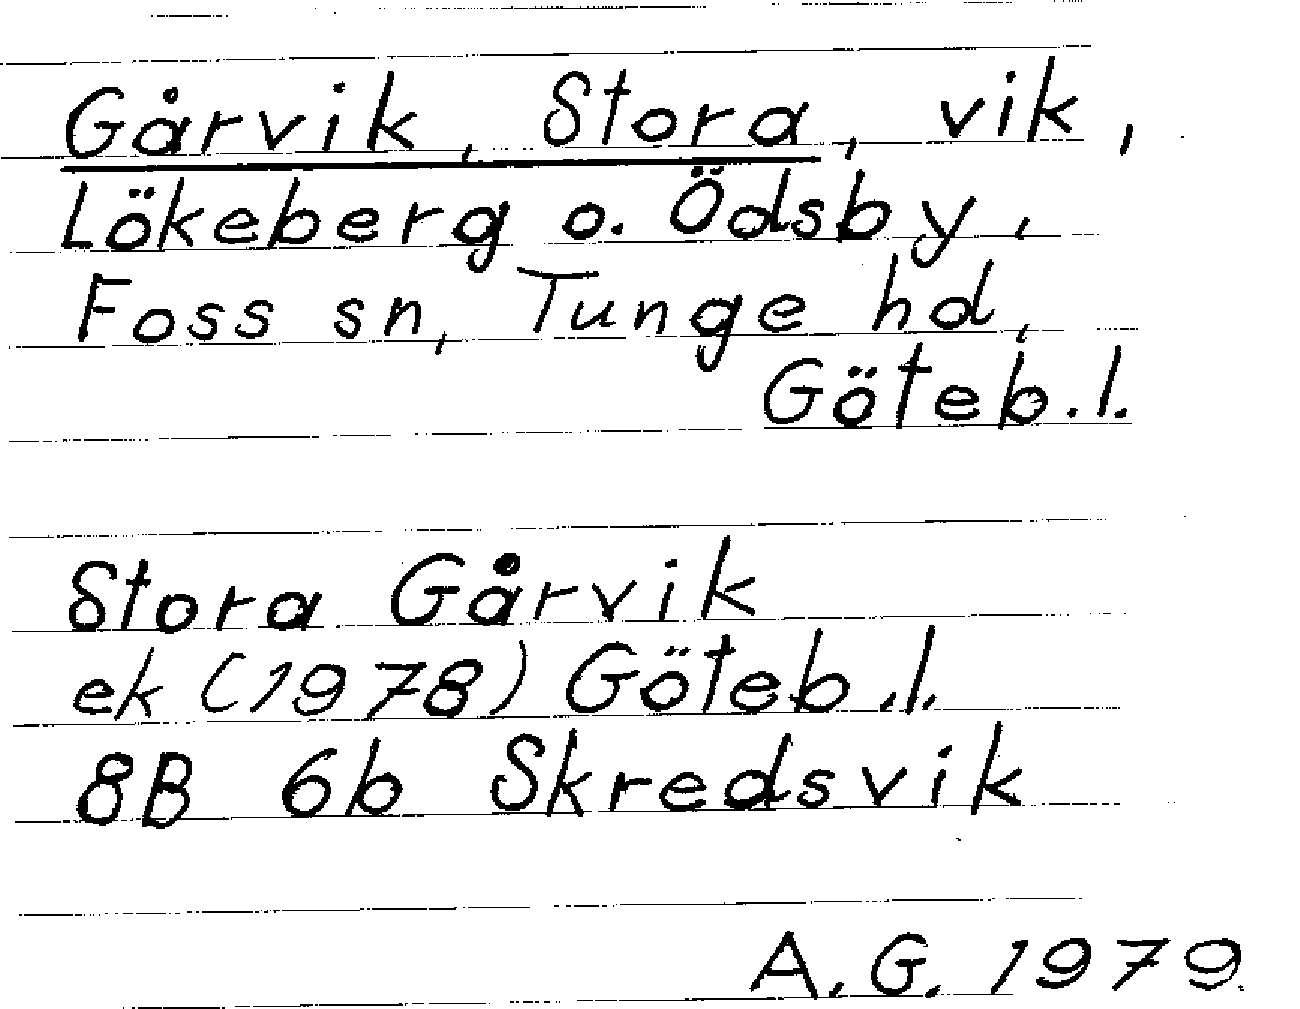 Gårvik, Stora, vik,
Lökeberg o. Ödsby,
Foss sn, Tunge hd,
Göteb. l.
Stora Gårvik
ek (1978) Göteb. l.
8B 6b Skredsvik
A. G. 1979.